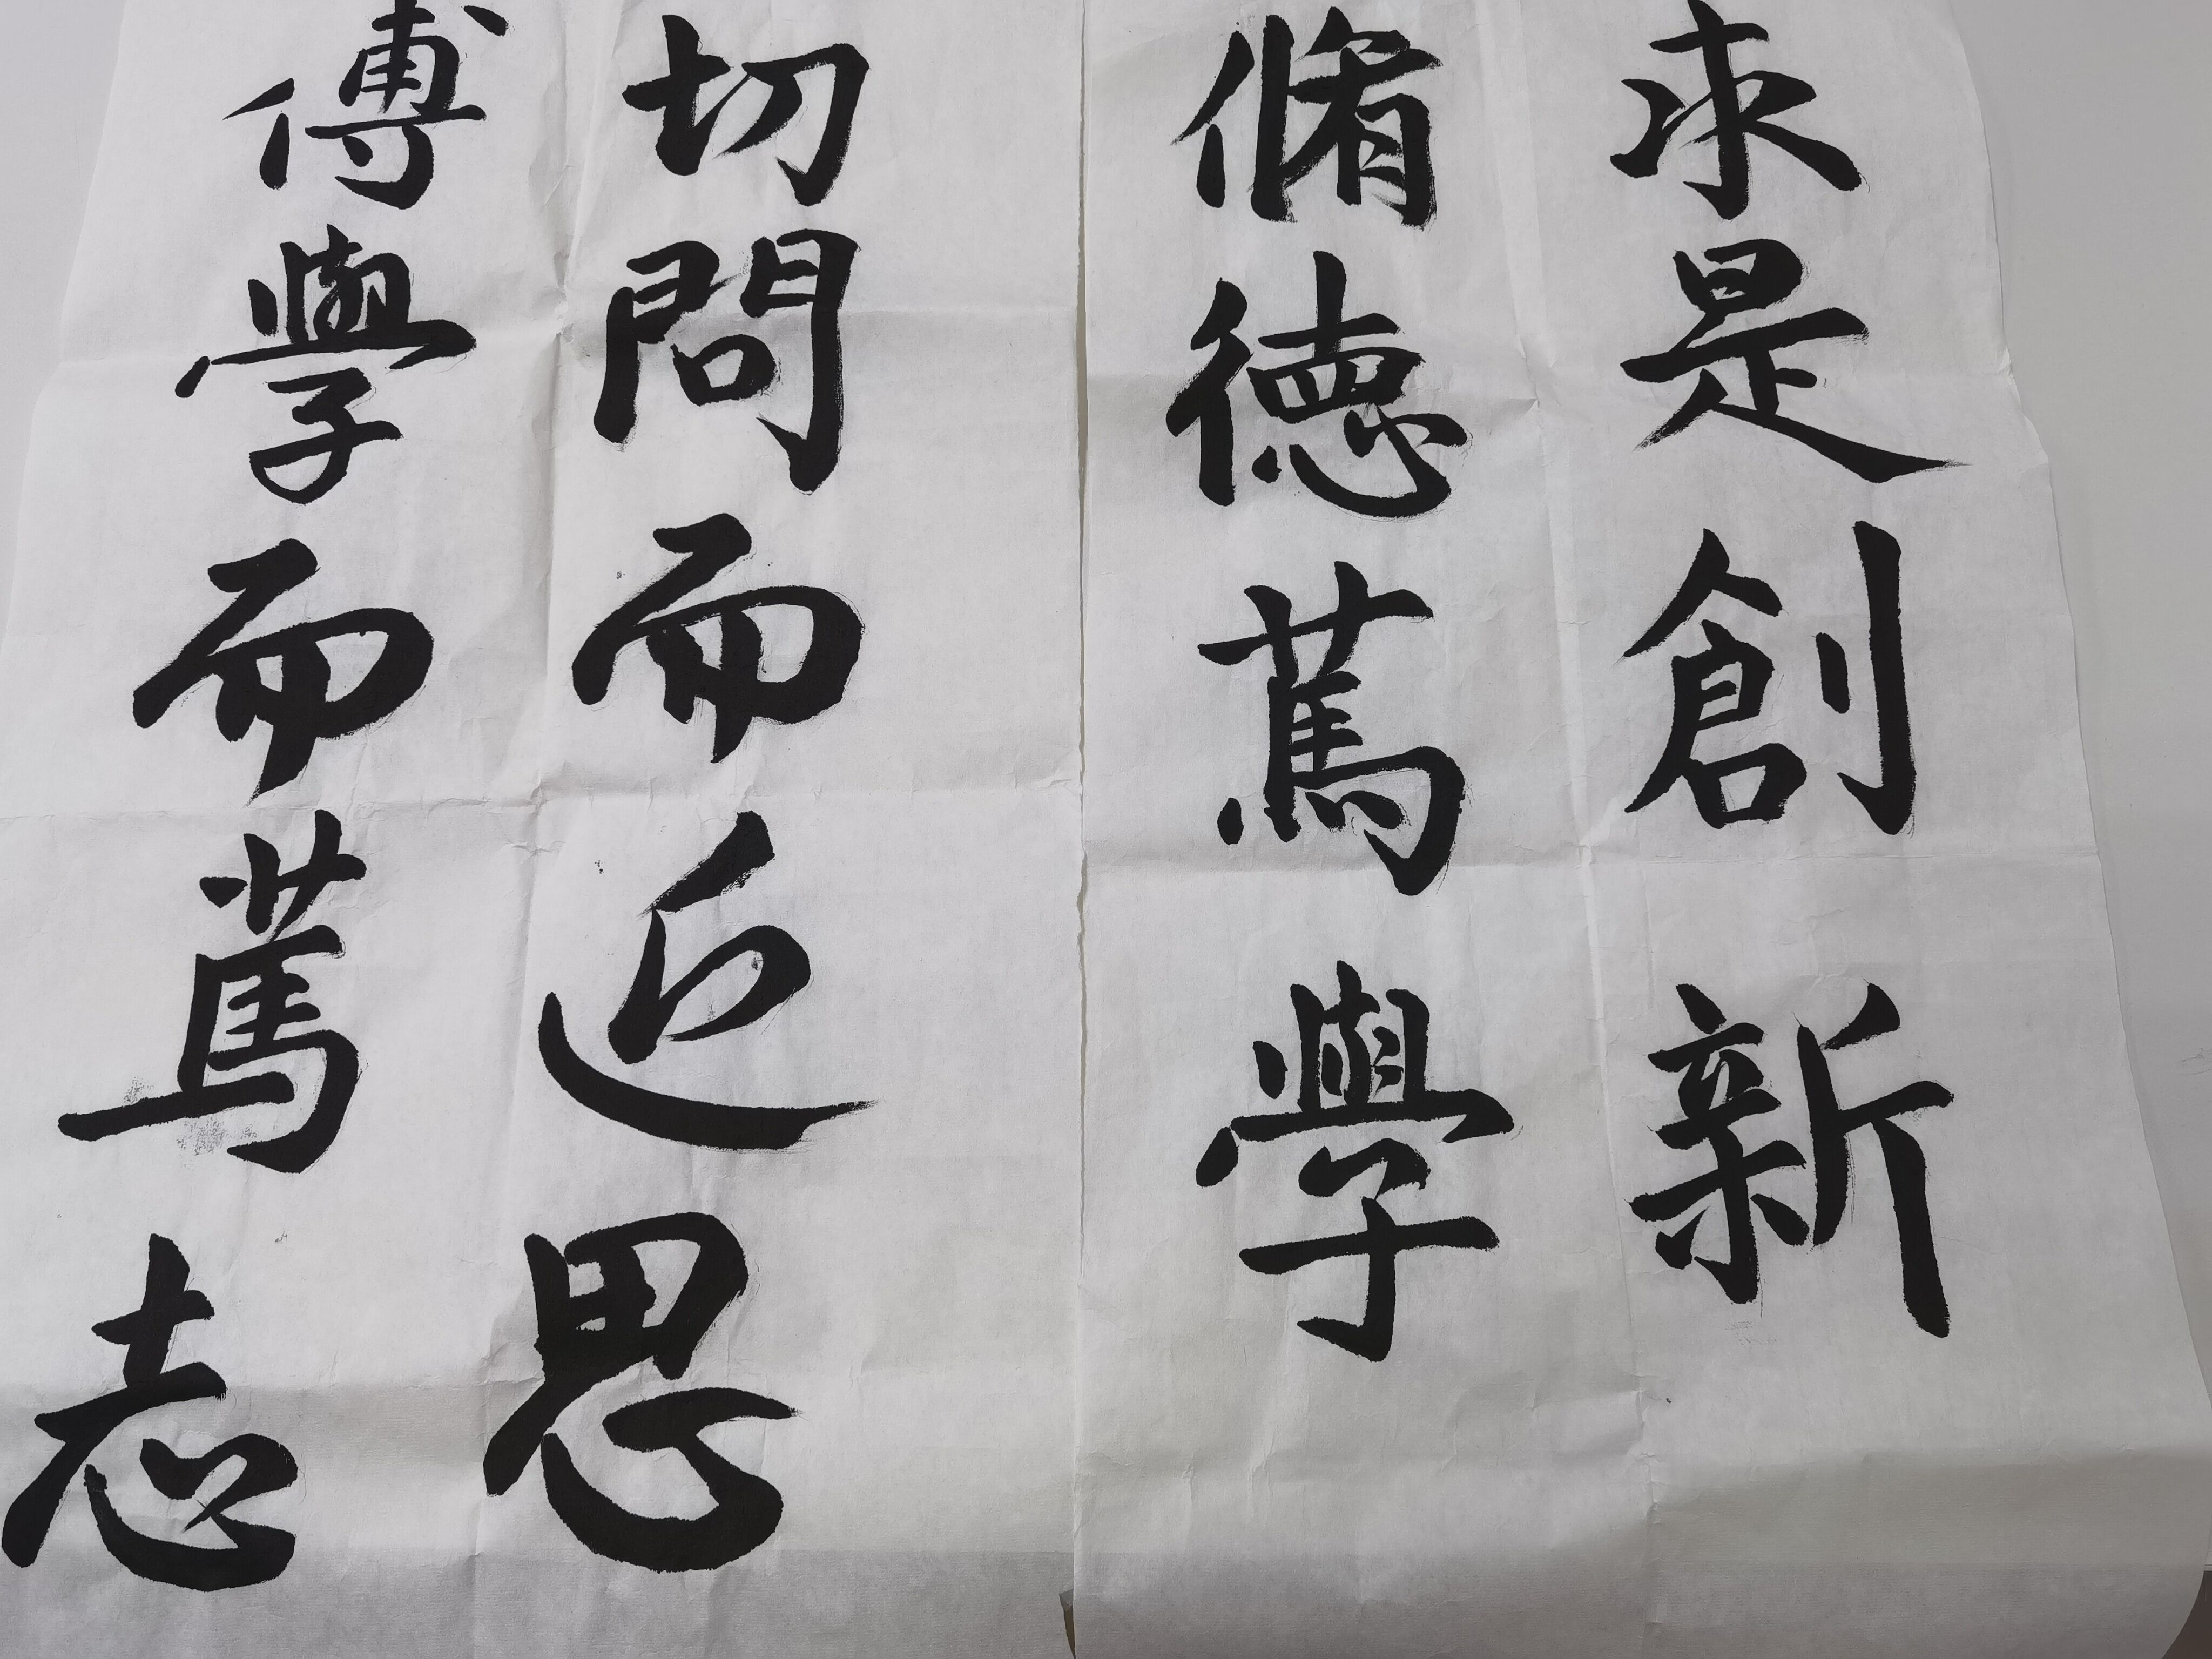 求是創新
脩徳篤學
切問而近思
傅學而篤志